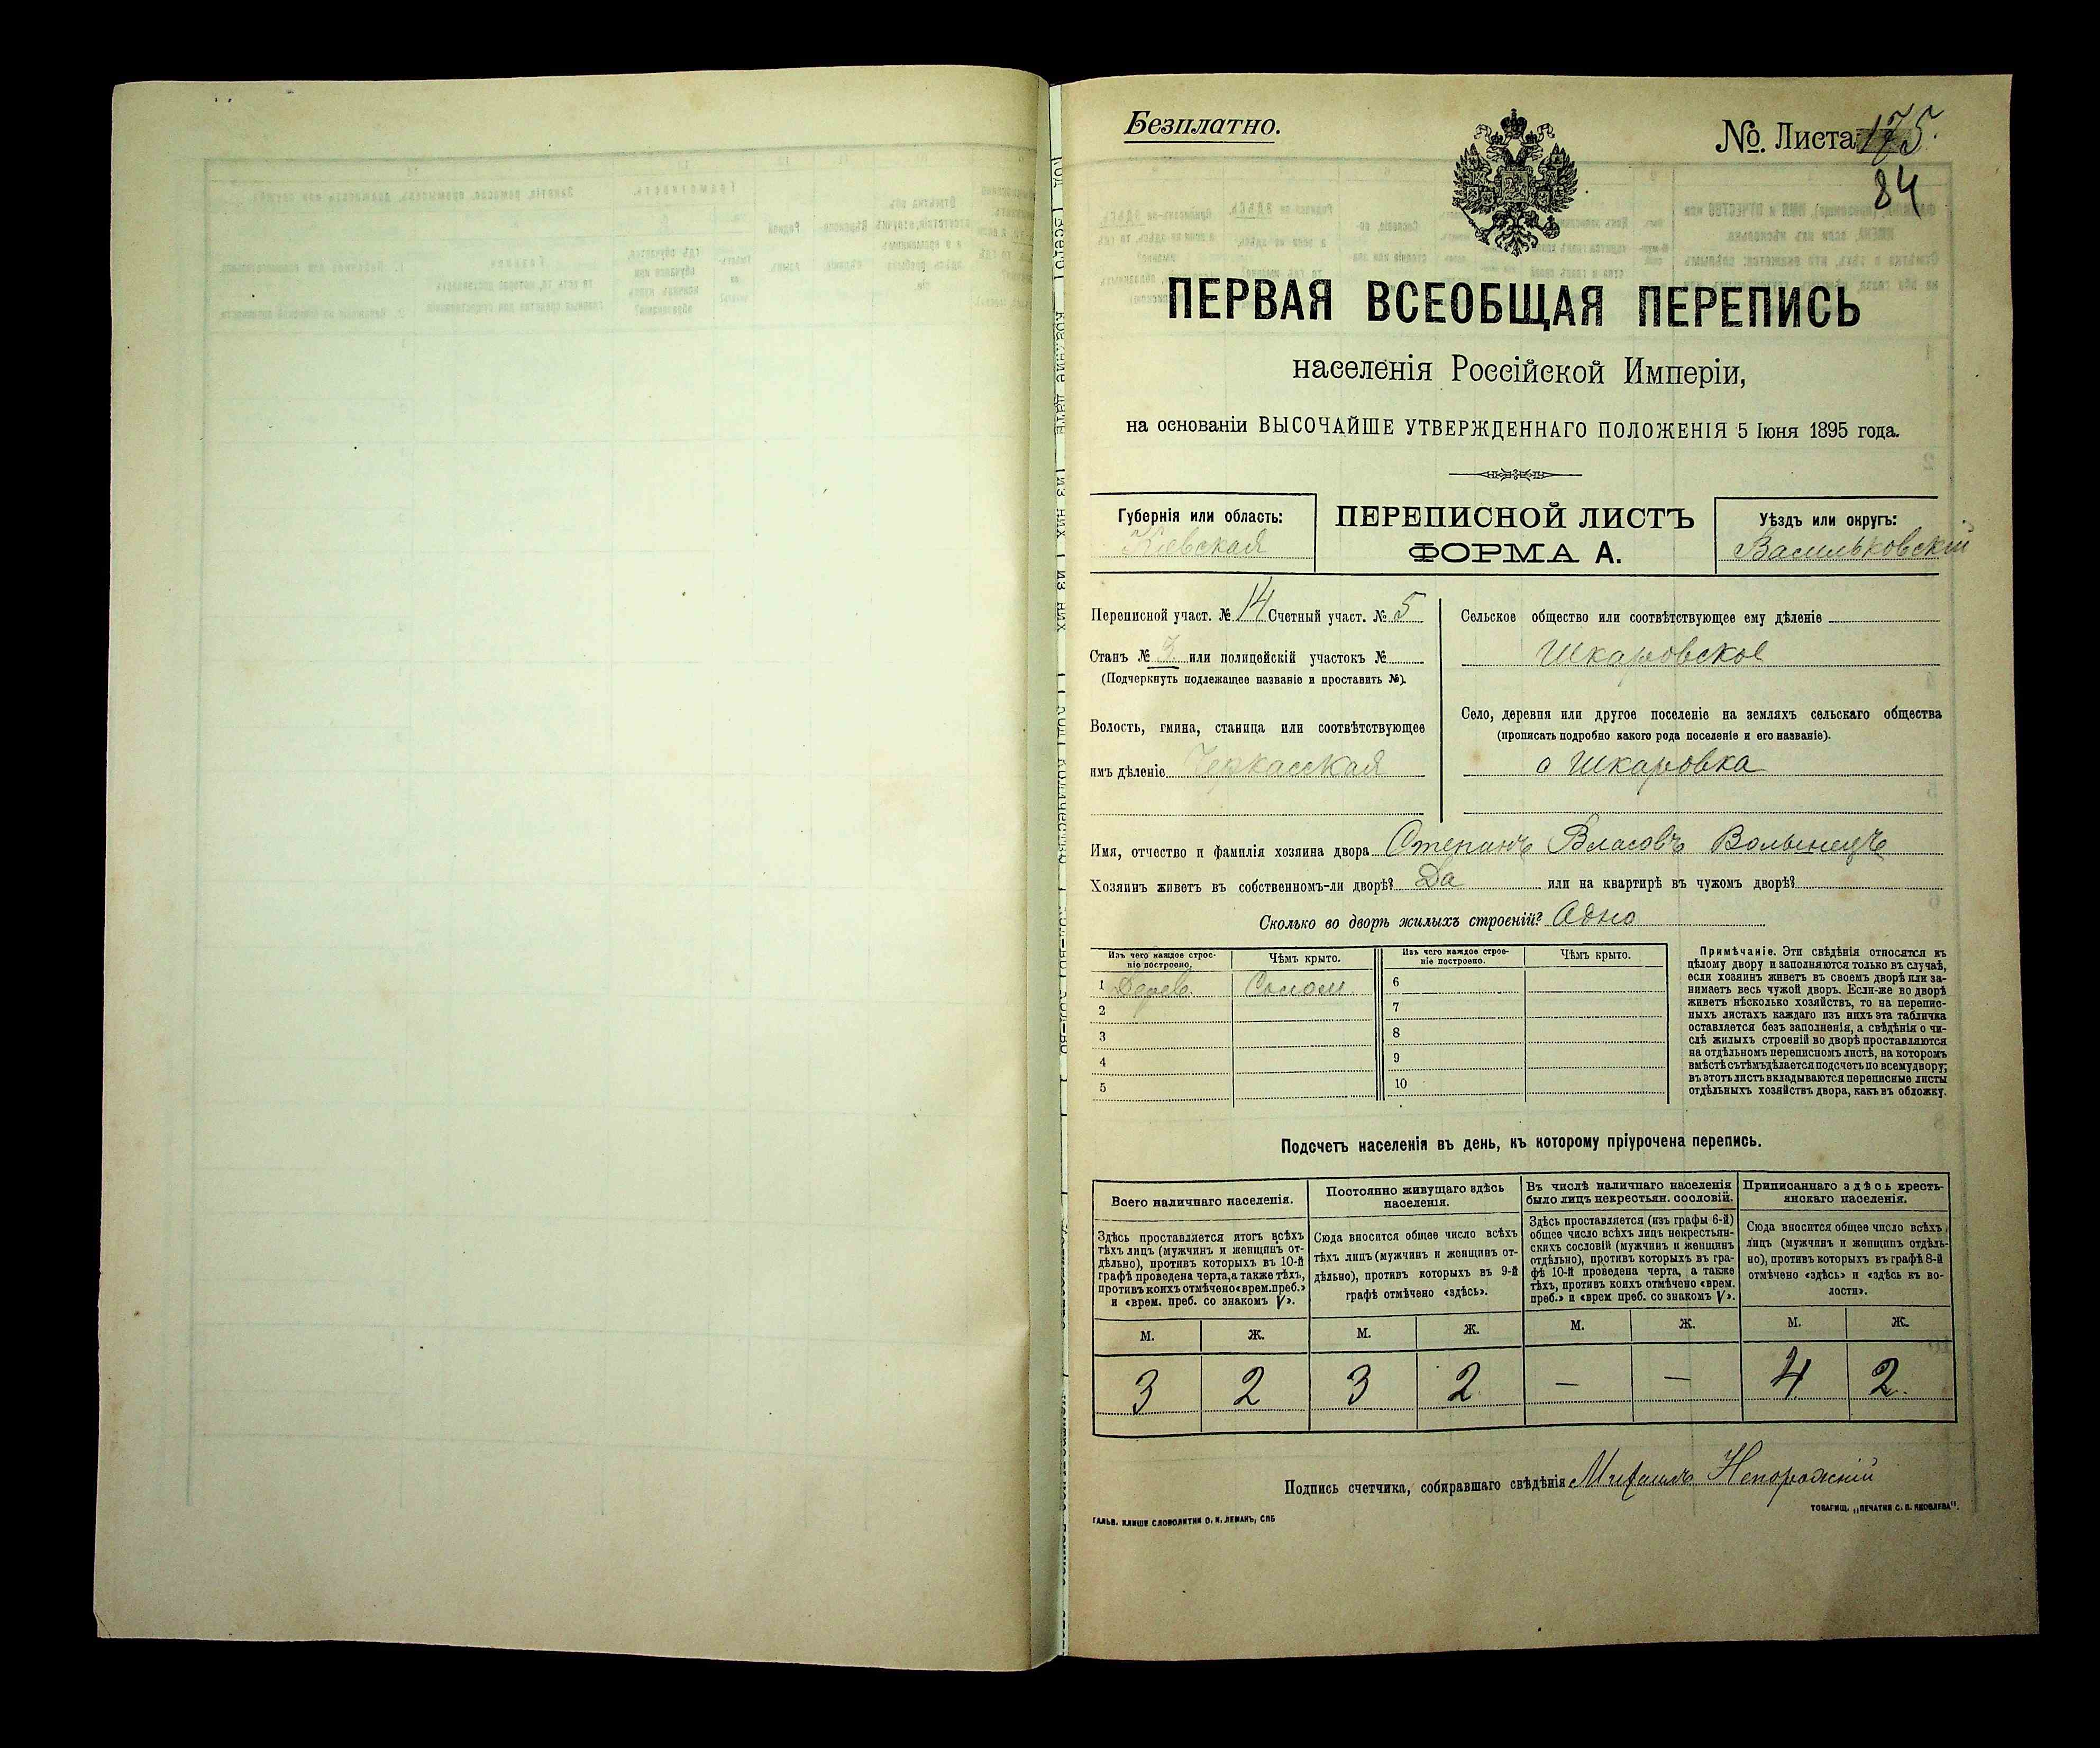 Безплатно.
№. Листа 175.
84
ПЕРВАЯ ВСЕОБЩАЯ ПЕРЕПИСЬ
населенія Россійской Имперіи,
на основаніи ВЫСОЧАЙШЕ УТВЕРЖДЕННАГО ПОЛОЖЕНІЯ 5 Іюня 1895 года.
Губернія или область:
Кіевская
ПЕРЕПИСНОЙ ЛИСТЪ
ФОРМА А.
Уѣздъ или округъ:
Васильковскій
Переписной участ. № 14 Счетный участ. № 5
Станъ № 3 или полицейскій участокъ №
(Подчеркнуть подлежащее названіе и проставить №).
Волость, гмина, станица или соотвѣтствующее
имъ дѣленіе Черкасская
Сельское общество или соотвѣтствующее ему дѣленіе
Шкаровское
Село, деревня или другое поселеніе на земляхъ сельскаго общества
(прописать подробно какого рода поселеніе и его названіе).
с Шкаровка
Имя, отчество и фамилія хозяина двора Степанъ Власовъ Волынецъ
Хозяинъ живетъ въ собственномъ-ли дворѣ? Да или на квартирѣ въ чужомъ дворѣ?
Сколько во дворѣ жилыхъ строеній? Одно
Изъ чего каждое строе-
ніе построено.
Чѣмъ крыто.
Изъ чего каждое строе-
ніе построено.
Чѣмъ крыто.
1 Дерев. Солом. 6
2 7
3 8
4 9
5 10
Примѣчаніе. Эти свѣдѣнія относятся къ
цѣлому двору и заполняются только въ случаѣ,
если хозяинъ живетъ въ своемъ дворѣ или за-
нимаетъ весь чужой дворъ. Если-же во дворѣ
живетъ нѣсколько хозяйствъ, то на перепис-
ныхъ листахъ каждаго изъ нихъ эта табличка
оставляется безъ заполненія, а свѣдѣнія о чи-
слѣ жилыхъ строеній во дворѣ проставляются
на отдѣльномъ переписномъ листѣ, на которомъ
вмѣстѣ съ тѣмъ дѣлается подсчетъ по всему двору;
въ этотъ листъ вкладываются переписные листы
отдѣльныхъ хозяйствъ двора, какъ въ обложку.
Подсчетъ населенія въ день, къ которому пріурочена перепись.
Всего наличнаго населенія.
Здѣсь проставляется итогъ всѣхъ
тѣхъ лицъ (мужчинъ и женщинъ от-
дѣльно), противъ которыхъ въ 10-й
графѣ проведена черта, а также тѣхъ,
противъ коихъ отмѣчено «врем. преб.»
и «врем. преб. со знакомъ V».
Постоянно живущаго здѣсь
населенія.
Сюда вносится общее число всѣхъ
тѣхъ лицъ (мужчинъ и женщинъ от-
дѣльно), противъ которыхъ въ 9-й
графѣ отмѣчено «здѣсь».
Въ числѣ наличнаго населенія
было лицъ некрестьян. сословій.
Здѣсь проставляется (изъ графы 6-й)
общее число всѣхъ лицъ некрестьян-
скихъ сословій (мужчинъ и женщинъ
отдѣльно), противъ которыхъ въ гра-
фѣ 10-й проведена черта, а также
тѣхъ, противъ коихъ отмѣчено «врем.
преб.» и «врем преб. со знакомъ V».
Приписаннаго здѣсь кресть-
янскаго населенія.
Сюда вносится общее число всѣхъ
лицъ (мужчинъ и женщинъ отдѣль-
но), противъ которыхъ въ графѣ 8-й
отмѣчено «здѣсь» и «здѣсь къ во-
лости».
М. Ж. М. Ж. М. Ж. М. Ж.
3 2 3 2 — — 4 2.
Подпись счетчика, собиравшаго свѣдѣнія Михаилъ Непорожній
ГАЛЬВ. КЛИШЕ СЛОВОЛИТНИ О. И. ЛЕМАНЪ, СПБ
ТОВАРИЩ. „ПЕЧАТНЯ С. П. ЯКОВЛЕВА".